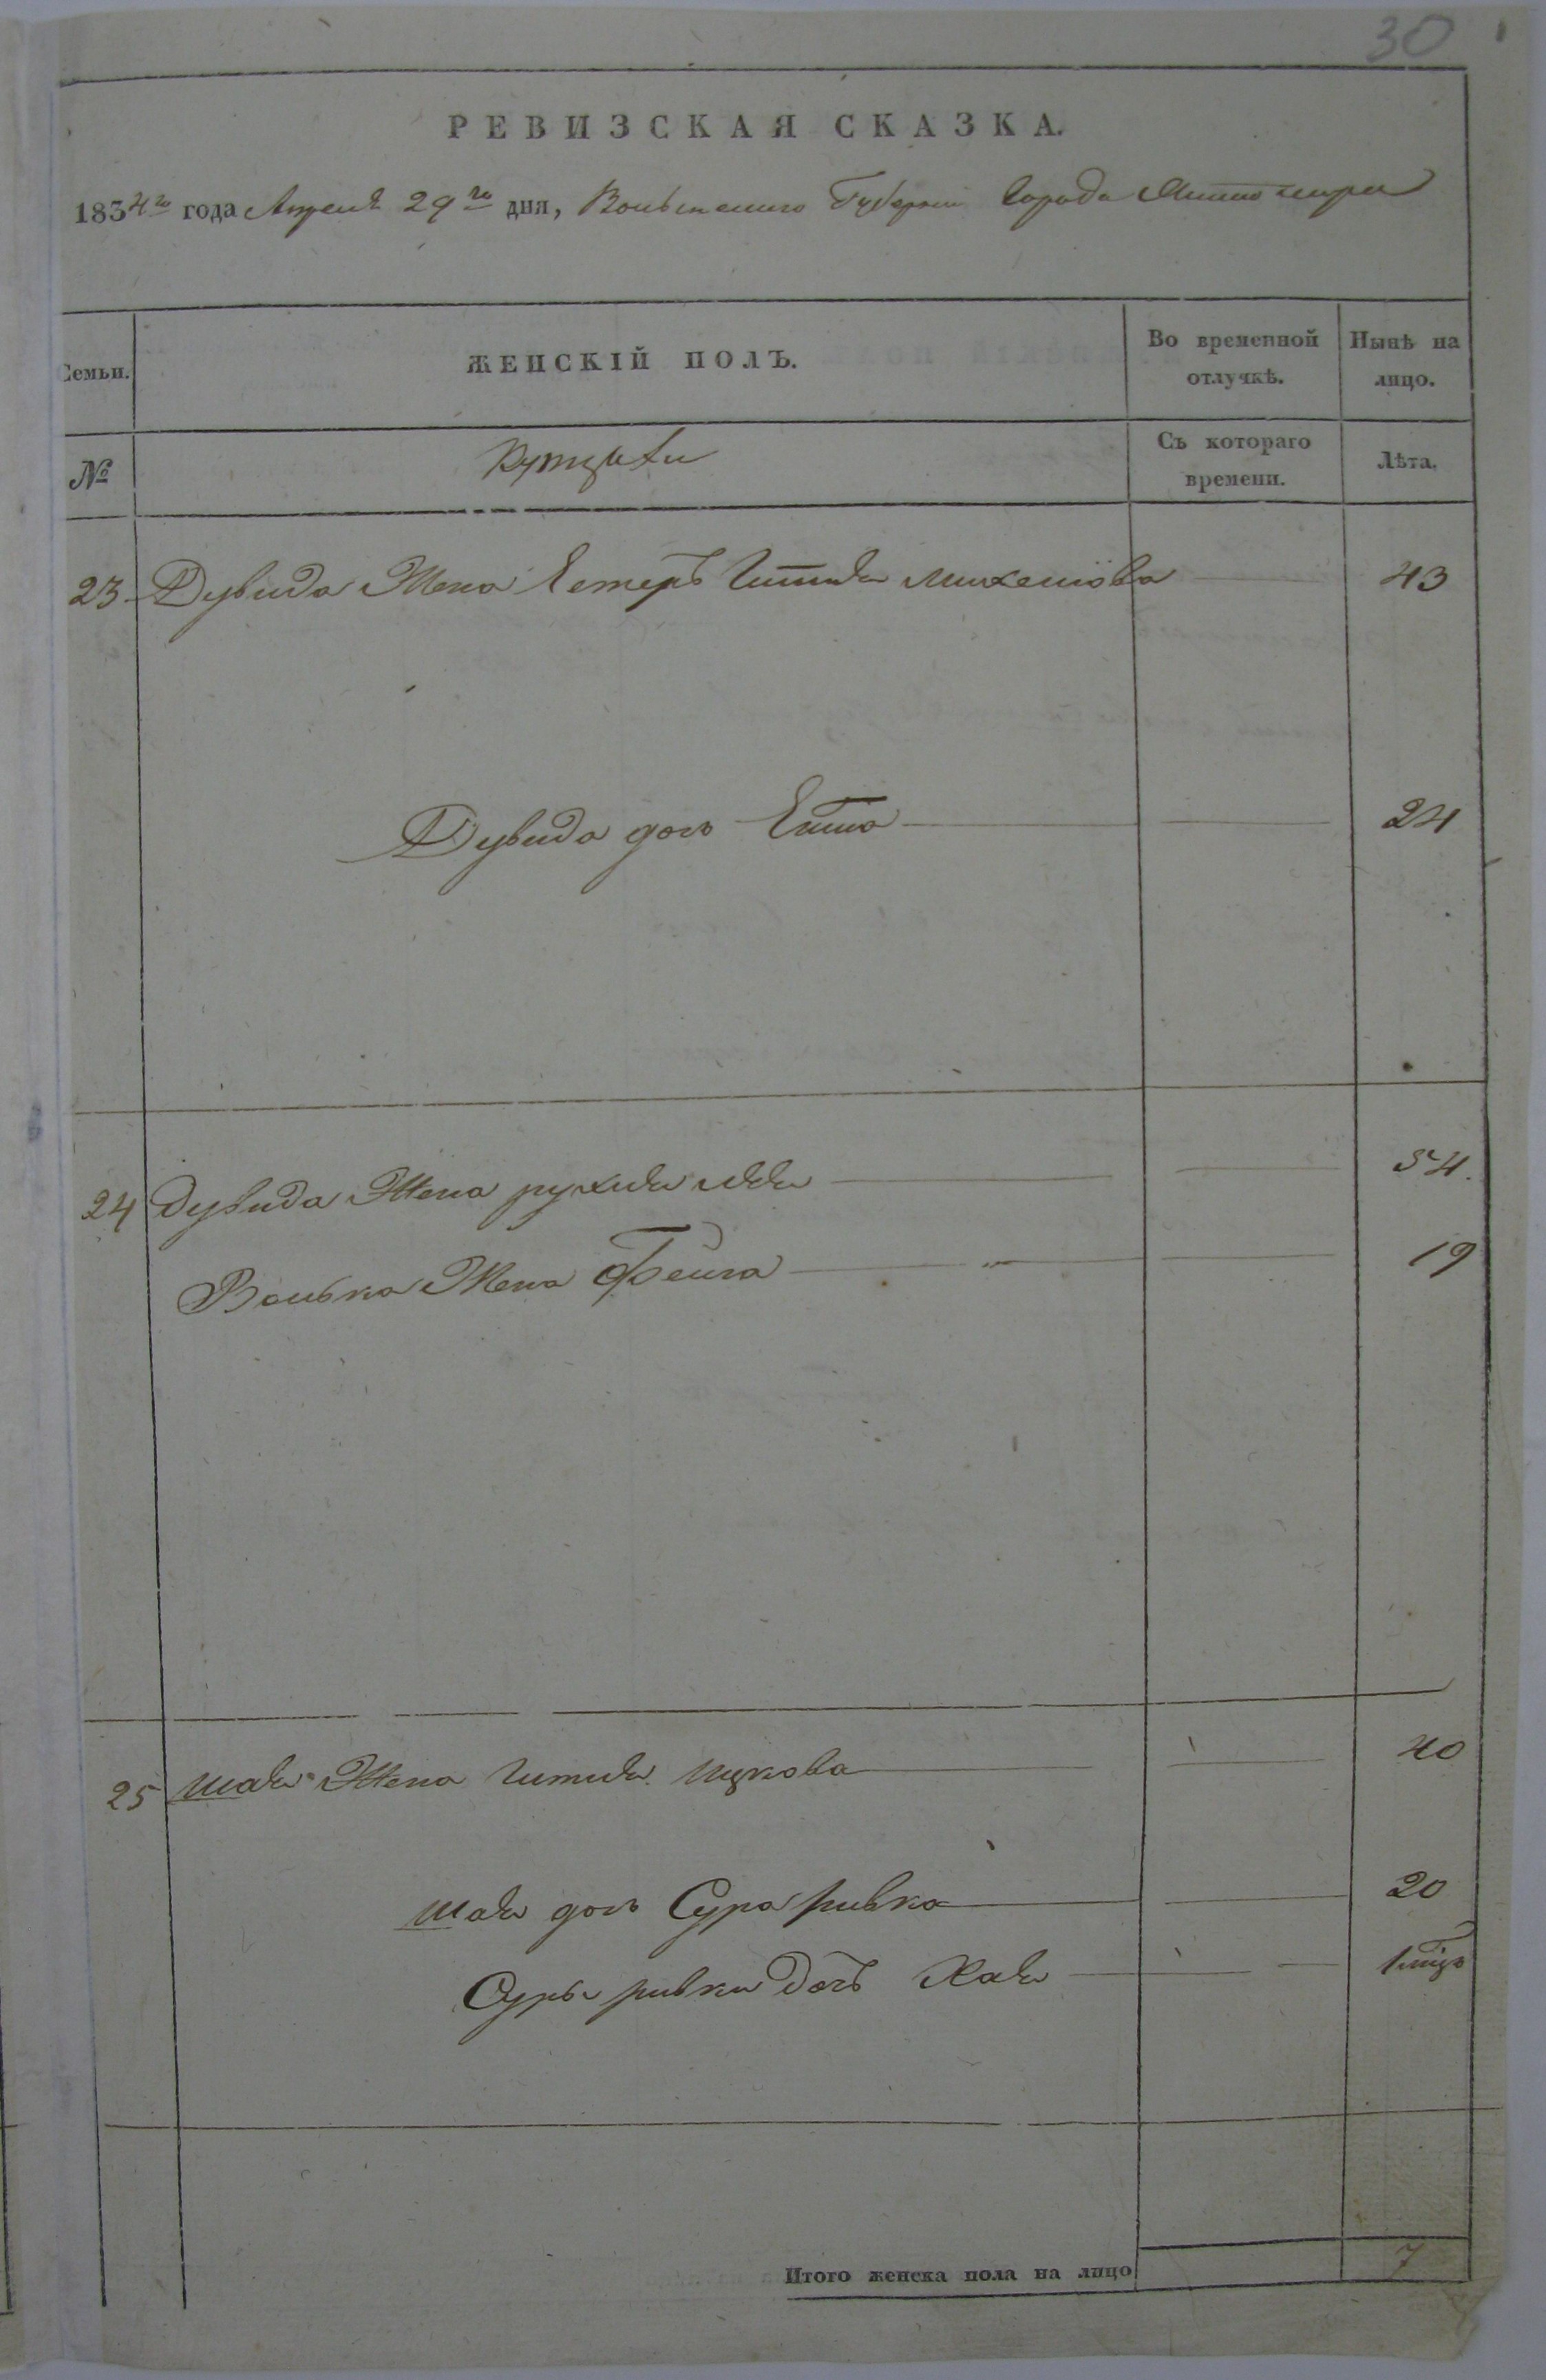 30
РЕВИЗСКАЯ СКАЗКА.
1834го года Апреля 29го дня, Волынской Губернии Города Житомира
Семьи.
ЖЕНСКІЙ ПОЛЪ.
Во временной отлучкѣ.
Нынѣ на лицо.
№
Съ котораго времени.
Лѣта.
23 Дувида Жена Естеръ Гитля Михелiова — 43
Дувида дочь Етта — — 24
24 Дувида Жена рухля — — 54.
Волька Жена Фейга — — 19
25 Шаи Жена Гитля Ицкова — — 40
Шаи дочь Сура ривка — — 20
Суры ривки дочъ Хая — — 1
Итого женска пола на лицо 7